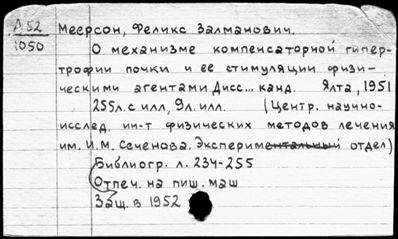 А 52
1050
Меерсон, Феликс Залманович.
О механизме компенсаторной гипер-
трофии почки и ее стимуляции физи-
ческими агентами Дисс... канд. Ялта, 1951
255л. с илл, 9л. илл. (Центр. научно-
исслед. ин-т физических методов лечения
им. И.М. Сеченова. Экспериментальный отдел)
Библиогр. л. 234-255
Отпеч. на пиш. маш
Защ. в 1952